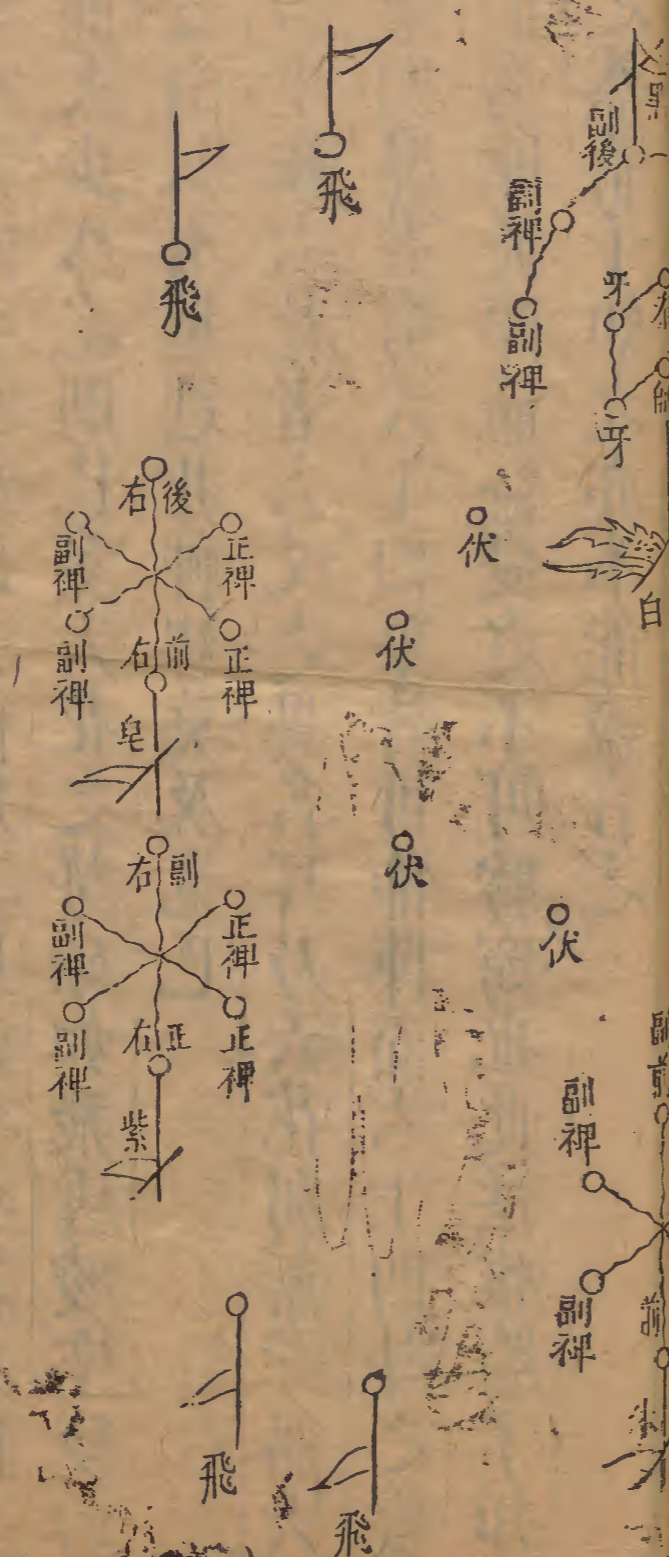 副後
副裨
副裨
牙
牙
帥
白
伏
伏
伏
伏
副
前
副裨
副裨
前
飛
飛
右後
正裨
副裨
正裨
副裨
右前
皂
右副
正裨
副裨
正裨
副裨
右正
紫
飛
飛